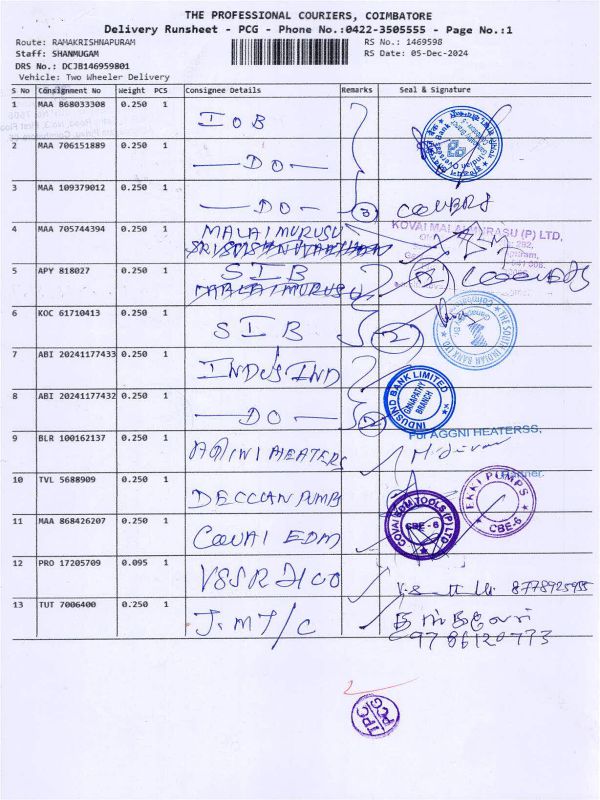 THE PROFESSIONAL COURIERS, COIMBATORE
Delivery Runsheet - PCG - Phone No.:0422-3505555 - Page No.:1
Route: RAMAKRISHNAPURAM RS No.: 1469598
Staff: SHANMUGAM RS Date: 05-Dec-2024
DRS No.: DCJB146959801
Vehicle: Two Wheeler Delivery
S No Consignment No Weight PCS Consignee Details Remarks Seal & Signature
1 MAA 868033308 0.250 1 IOB
2 MAA 706151889 0.250 1 —DO—
3 MAA 109379012 0.250 1 —DO— 3
4 MAA 705744394 0.250 1 MALAIMURUSU
KOVAI MALAI MURASU (P) LTD,
5 APY 818027 1 SIB
MALAIMURUSU
6 KOC 61710413 0.250 1 SIB 2
THE SOUTH INDIAN BANK LTD
7 ABI 20241177433 0.250 1 INDUSIND
INDUSIND BANK LIMITED
GANAPATHY
BRANCH
8 ABI 20241177432 0.250 1 —DO— 2
9 BLR 100162137 0.250 1 AGINI HEATERS
For AGGNI HEATERSS,
Partner.
10 TVL 5688909 0.250 1 DECCAN PUMPS
EKKI PUMPS
CBE-6
11 MAA 868426207 0.250 1 COVAI EDM
COVAI EDM TOOLS (P) LTD
CBE - 6
12 PRO 17205709 0.095 1 VSSR & CO
8778925955
13 TUT 7006400 0.250 1 J.MT/C
9786120773
2
TPC